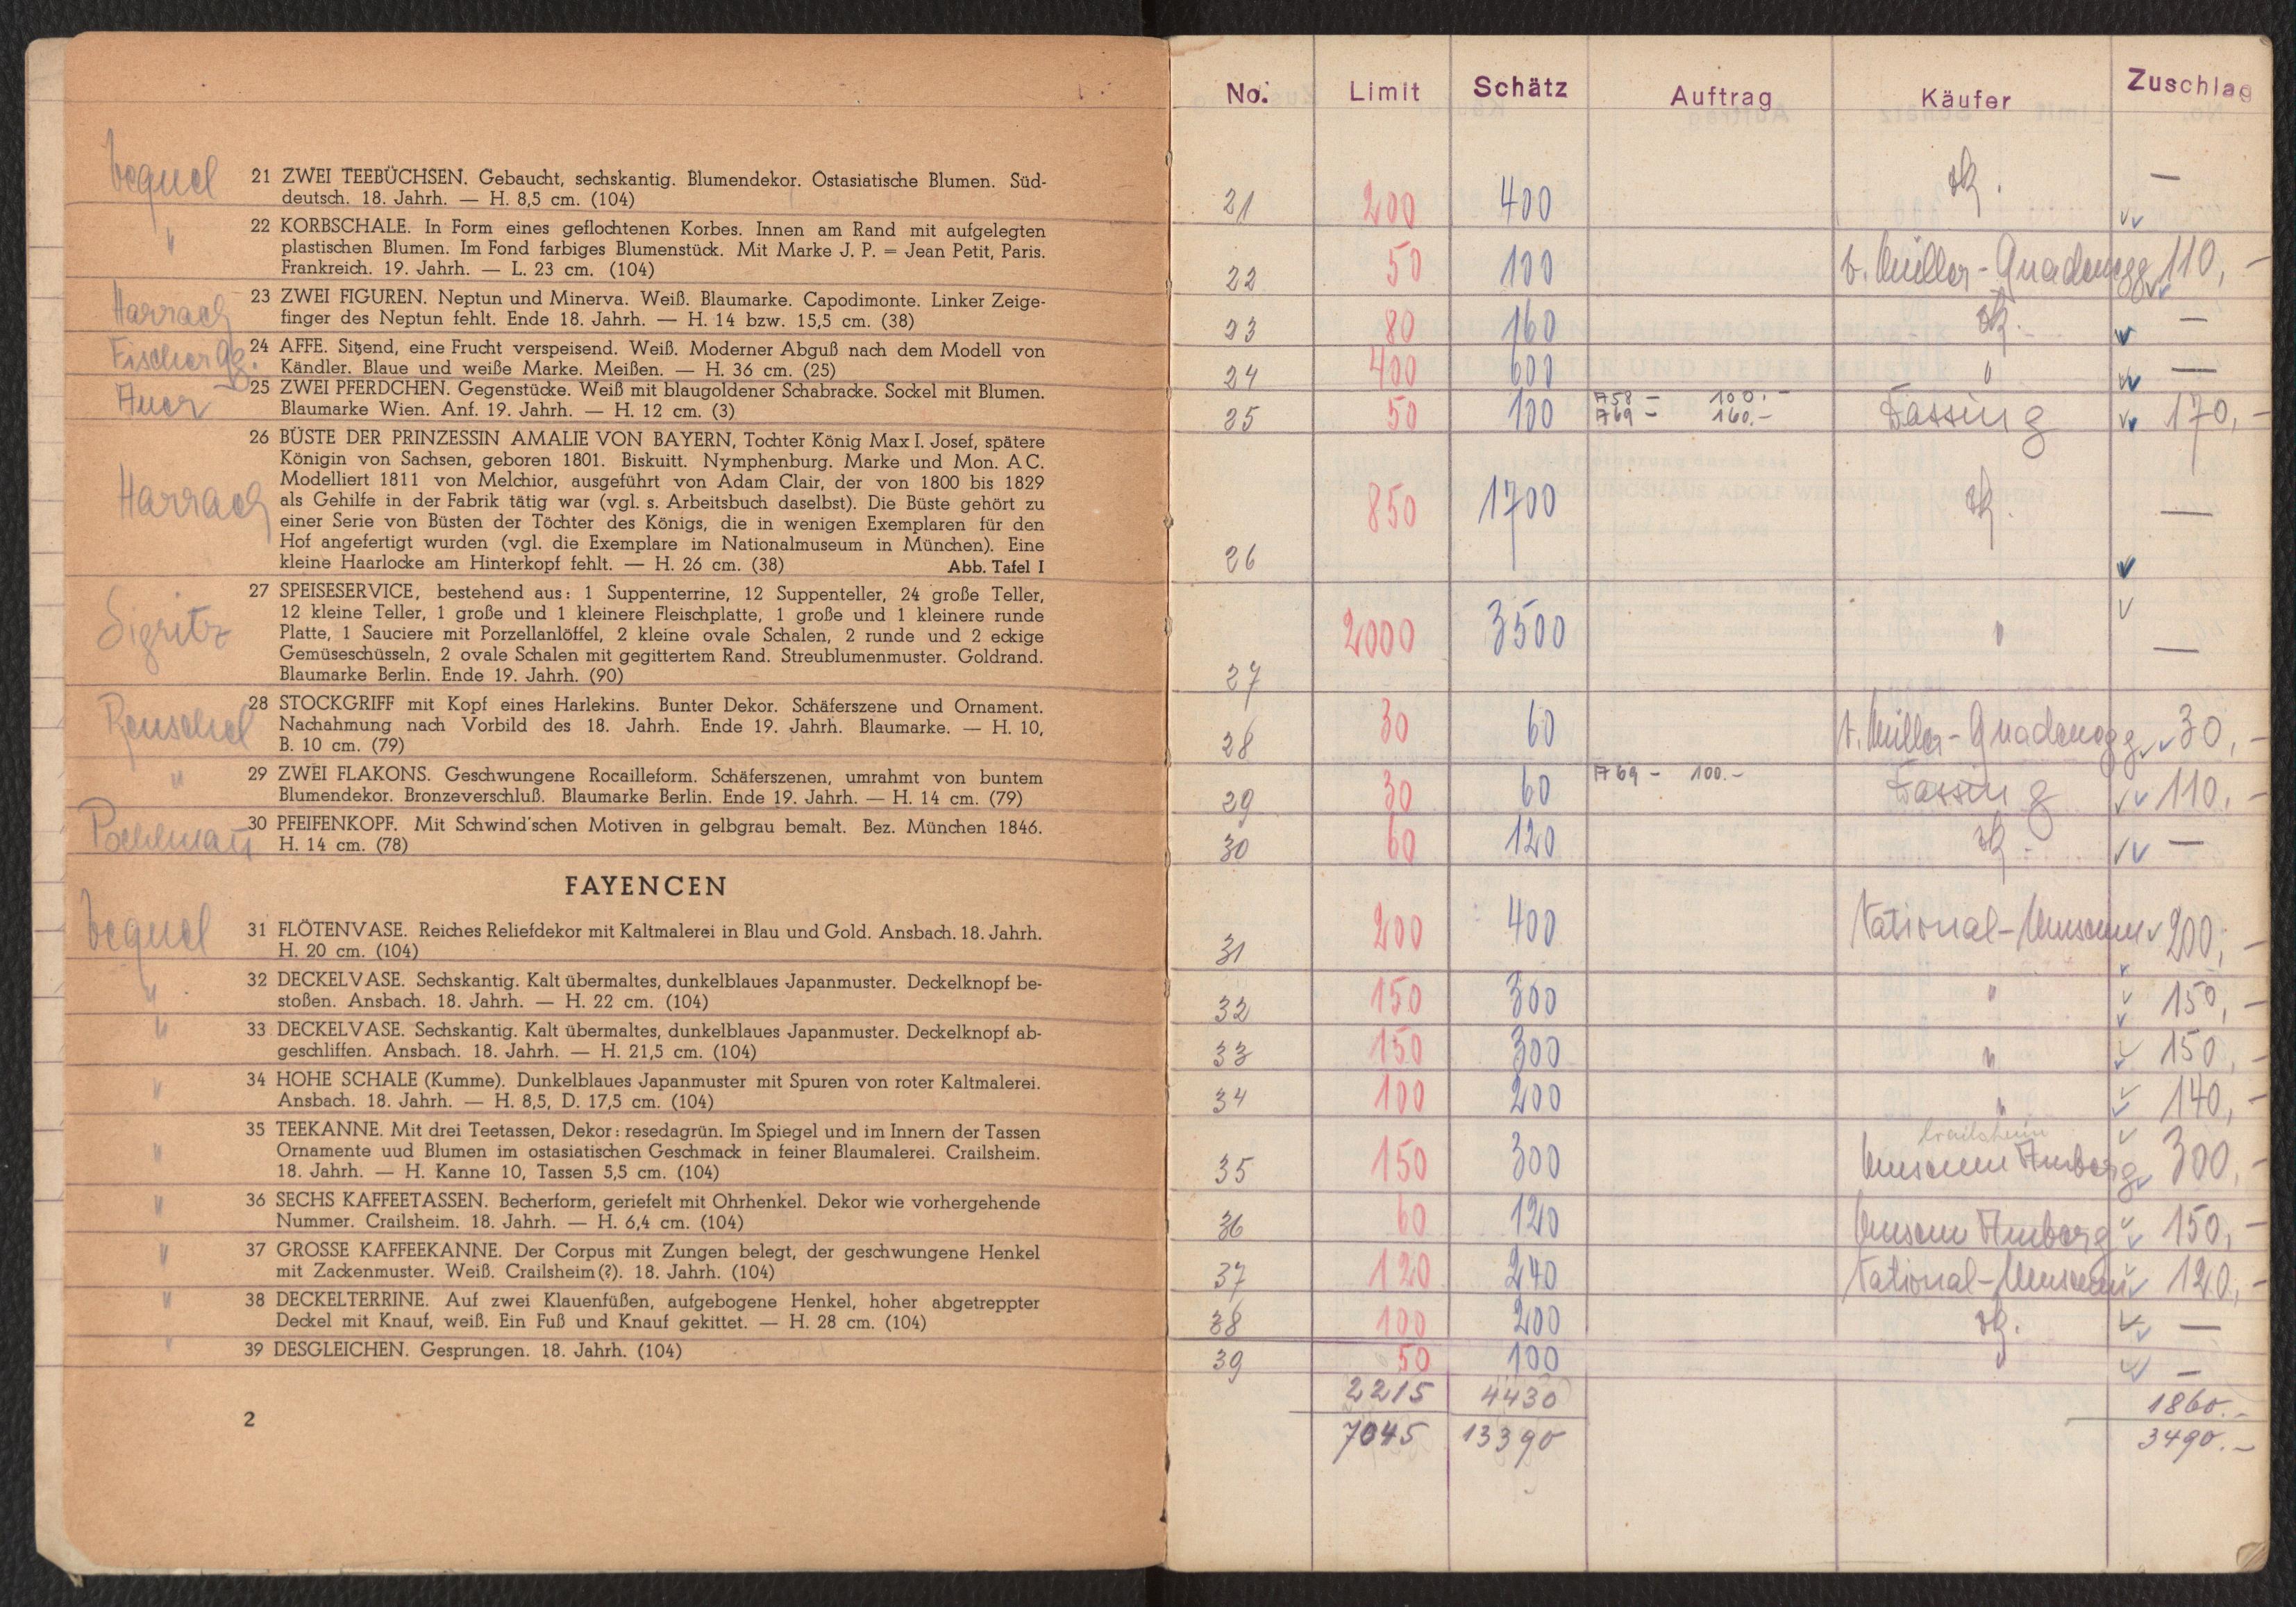 21 ZWEI TEEBÜCHSEN. Gebaucht, sechskantig. Blumendekor. Ostasiatische Blumen. Süd-
deutsch. 18. Jahrh. — H. 8,5 cm. (104)
"
22 KORBSCHALE. In Form eines geflochtenen Korbes. Innen am Rand mit aufgelegten
plastischen Blumen. Im Fond farbiges Blumenstück. Mit Marke J. P. = Jean Petit, Paris.
Frankreich. 19. Jahrh. — L. 23 cm. (104)
Harrach
23 ZWEI FIGUREN. Neptun und Minerva. Weiß. Blaumarke. Capodimonte. Linker Zeige-
finger des Neptun fehlt. Ende 18. Jahrh. — H. 14 bzw. 15,5 cm. (38)
Fischer Gg.
24 AFFE. Sitzend, eine Frucht verspeisend. Weiß. Moderner Abguß nach dem Modell von
Kändler. Blaue und weiße Marke. Meißen. — H. 36 cm. (25)
Auer
25 ZWEI PFERDCHEN. Gegenstücke. Weiß mit blaugoldener Schabracke. Sockel mit Blumen.
Blaumarke Wien. Anf. 19. Jahrh. — H. 12 cm. (3)
Harrach
26 BÜSTE DER PRINZESSIN AMALIE VON BAYERN, Tochter König Max I. Josef, spätere
Königin von Sachsen, geboren 1801. Biskuitt. Nymphenburg. Marke und Mon. A C.
Modelliert 1811 von Melchior, ausgeführt von Adam Clair, der von 1800 bis 1829
als Gehilfe in der Fabrik tätig war (vgl. s. Arbeitsbuch daselbst). Die Büste gehört zu
einer Serie von Büsten der Töchter des Königs, die in wenigen Exemplaren für den
Hof angefertigt wurden (vgl. die Exemplare im Nationalmuseum in München). Eine
kleine Haarlocke am Hinterkopf fehlt. — H. 26 cm. (38) Abb. Tafel I
Sigritz
27 SPEISESERVICE, bestehend aus: 1 Suppenterrine, 12 Suppenteller, 24 große Teller,
12 kleine Teller, 1 große und 1 kleinere Fleischplatte, 1 große und 1 kleinere runde
Platte, 1 Sauciere mit Porzellanlöffel, 2 kleine ovale Schalen, 2 runde und 2 eckige
Gemüseschüsseln, 2 ovale Schalen mit gegittertem Rand. Streublumenmuster. Goldrand.
Blaumarke Berlin. Ende 19. Jahrh. (90)
Renschel
28 STOCKGRIFF mit Kopf eines Harlekins. Bunter Dekor. Schäferszene und Ornament.
Nachahmung nach Vorbild des 18. Jahrh. Ende 19. Jahrh. Blaumarke. — H. 10,
B. 10 cm. (79)
"
29 ZWEI FLAKONS. Geschwungene Rocailleform. Schäferszenen, umrahmt von buntem
Blumendekor. Bronzeverschluß. Blaumarke Berlin. Ende 19. Jahrh. — H. 14 cm. (79)
30 PFEIFENKOPF. Mit Schwind'schen Motiven in gelbgrau bemalt. Bez. München 1846.
H. 14 cm. (78)
FAYENCEN
31 FLÖTENVASE. Reiches Reliefdekor mit Kaltmalerei in Blau und Gold. Ansbach. 18. Jahrh.
H. 20 cm. (104)
"
32 DECKELVASE. Sechskantig. Kalt übermaltes, dunkelblaues Japanmuster. Deckelknopf be-
stoßen. Ansbach. 18. Jahrh. — H. 22 cm. (104)
"
33 DECKELVASE. Sechskantig. Kalt übermaltes, dunkelblaues Japanmuster. Deckelknopf ab-
geschliffen. Ansbach. 18. Jahrh. — H. 21,5 cm. (104)
"
34 HOHE SCHALE (Kumme). Dunkelblaues Japanmuster mit Spuren von roter Kaltmalerei.
Ansbach. 18. Jahrh. — H. 8,5, D. 17,5 cm. (104)
"
35 TEEKANNE. Mit drei Teetassen, Dekor: resedagrün. Im Spiegel und im Innern der Tassen
Ornamente uud Blumen im ostasiatischen Geschmack in feiner Blaumalerei. Crailsheim.
18. Jahrh. — H. Kanne 10, Tassen 5,5 cm. (104)
"
36 SECHS KAFFEETASSEN. Becherform, geriefelt mit Ohrhenkel. Dekor wie vorhergehende
Nummer. Crailsheim. 18. Jahrh. — H. 6,4 cm. (104)
"
37 GROSSE KAFFEEKANNE. Der Corpus mit Zungen belegt, der geschwungene Henkel
mit Zackenmuster. Weiß. Crailsheim(?). 18. Jahrh. (104)
"
38 DECKELTERRINE. Auf zwei Klauenfüßen, aufgebogene Henkel, hoher abgetreppter
Deckel mit Knauf, weiß. Ein Fuß und Knauf gekittet. — H. 28 cm. (104)
"
39 DESGLEICHEN. Gesprungen. 18. Jahrh. (104)
2
No. Limit Schätz Auftrag Käufer Zuschlag
21 200 400 zk. —
22 50 100 v. Müller-Gnadenegg 110,—
23 80 160 zk. —
24 400 600 " —
758 — 100.—
25 50 100 769 — 160.— Fassing 170,—
26 850 1700 zk. —
27 2000 3500 " —
28 30 60 v. Müller-Gnadenegg 30,—
29 30 60 769 — 100.— Fassing 110,—
30 60 120 zk. —
31 200 400 National-Museum 200,—
32 150 300 " 150,—
33 150 300 " 150,—
34 100 200 " 140,—
Crailsheim
35 150 300 Museum Amberg 300,—
36 60 120 Museum Amberg 150,—
37 120 240 National-Museum 120,—
38 100 200 zk. —
39 50 100 " —
2215 4430 1860.—
7045 13390 3490.—